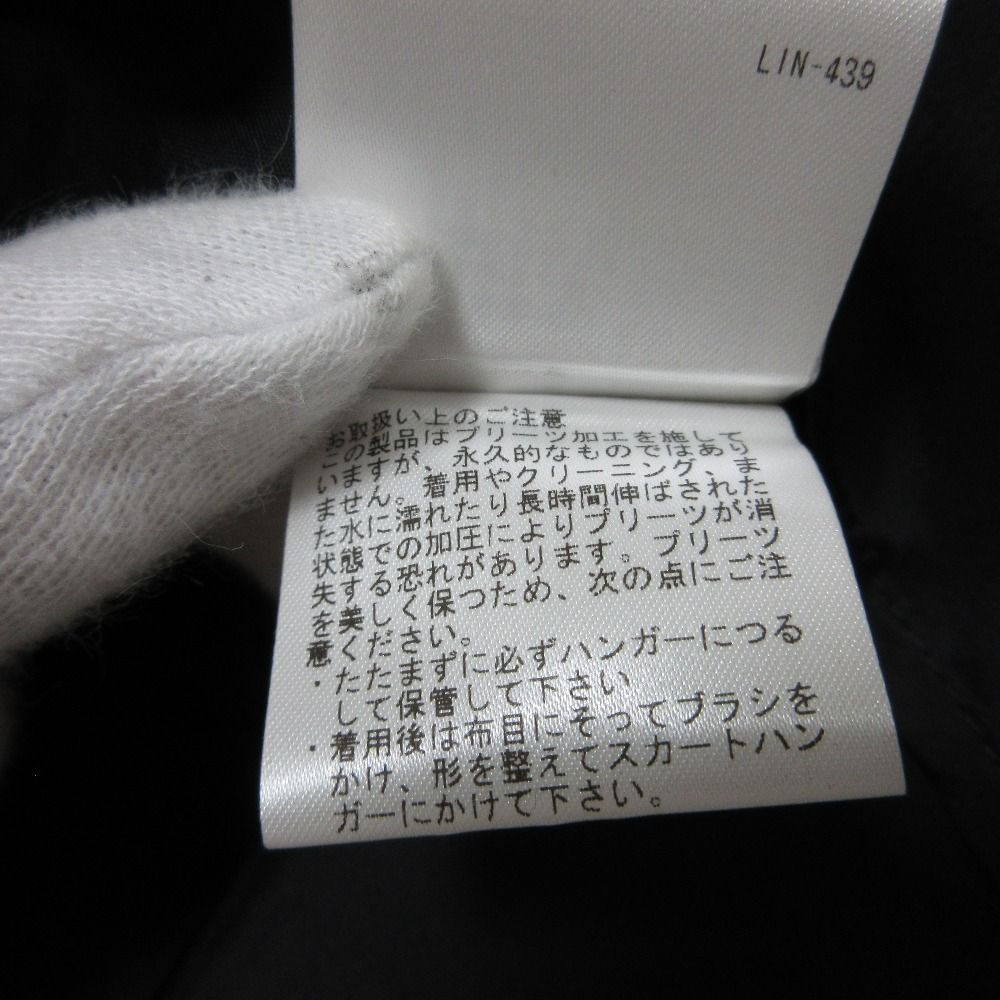 LIN-439
お取扱い上のご注意
この製品は、プリーツ加工を施して
いますが、永久的なものではあり
ません。着用やクリーニング、ま
た水に濡れたり長時間伸ばされた
状態での加圧によりプリーツが消
失する恐れがあります。プリーツ
を美しく保つため、次の点にご注
意ください。
・たたまずに必ずハンガーにつる
して保管して下さい
・着用後は布目にそってブラシを
かけ、形を整えてスカートハン
ガーにかけて下さい。